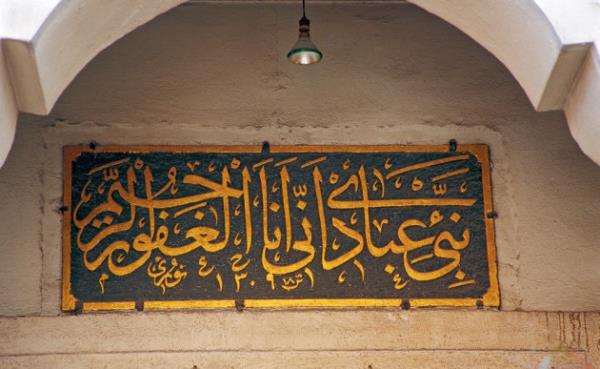 نبئ عبادي اني انا الغفور الرحيم